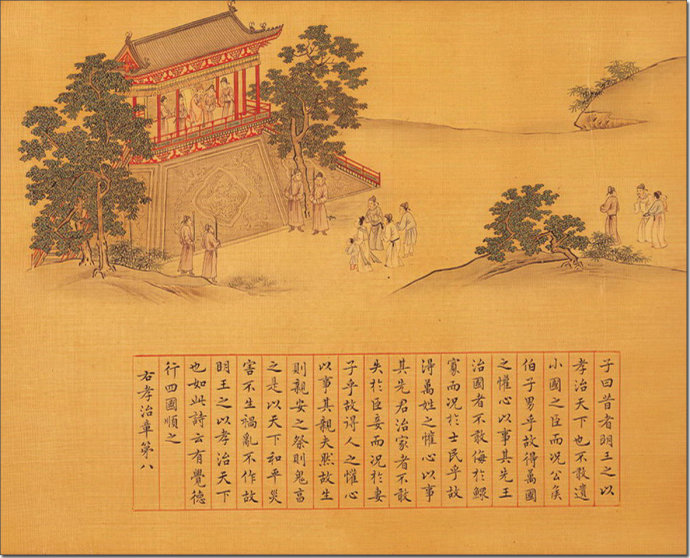 子曰昔者明王之以
孝治天下也不敢遺
小國之臣而況公侯
伯子男乎故得萬國
之懽心以事其先王
治國者不敢侮於鰥
寡而況於士民乎故
得萬姓之懽心以事
其先君治家者不敢
失於臣妾而況於妻
子乎故得人之懽心
以事其親夫然故生
則親安之祭則鬼享
之是以天下和平災
害不生禍亂不作故
明王之以孝治天下
也如此詩云有覺德
行四國順之
右孝治章第八